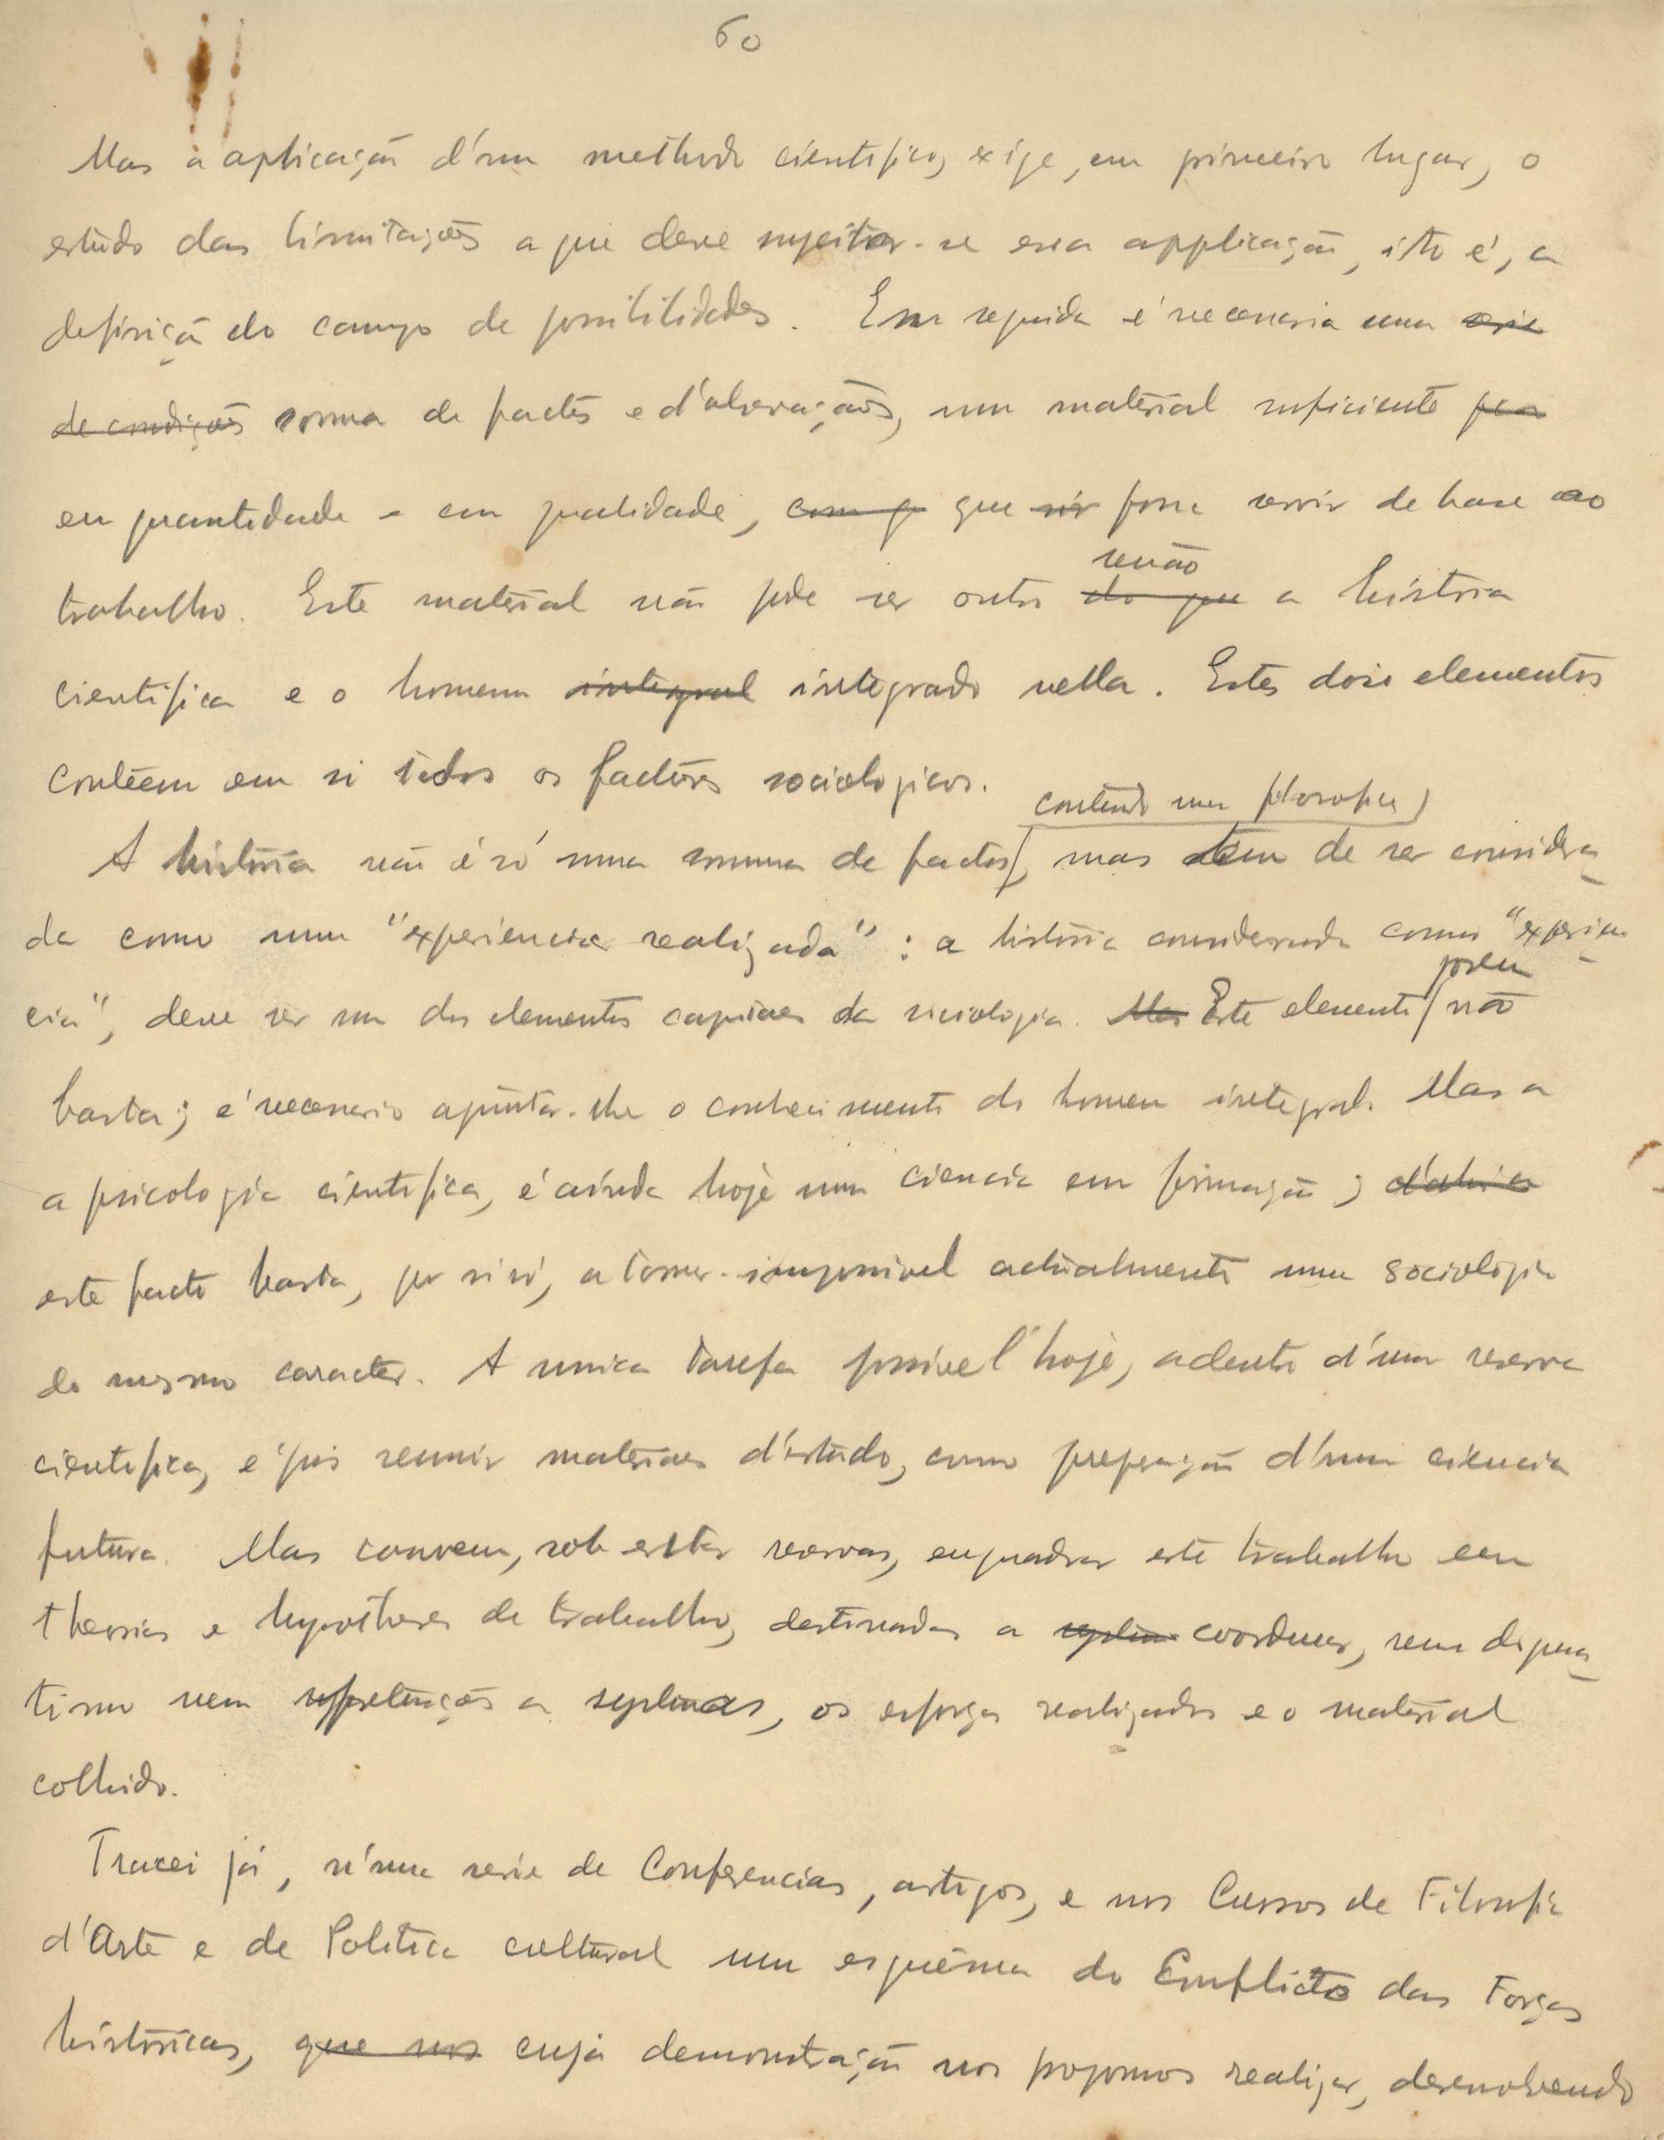 60
Mas a aplicação d'um methodo cientifico, exige, em primeiro lugar, o
estudo das limitações a que deve sujeitar-se essa applicação, isto é, a
definição do campo de possibilidades. Em seguida é necessaria uma serie
de condições somma de factos e d'observações, um material suficiente
em quantidade e em qualidade, com q que possa servir de base ao
senão
trabalho. Este material não pode ser outro do que a história
cientifica e o homem integral integrado nella. Estes dois elementos
contêem em si todos os factores sociologicos.
contendo uma filosofia
A história não é só uma somma de factos, mas tem de ser considera-
da como uma "experiencia realizada" : a história considerada como "experien-
porem
cia", deve ser um dos elementos capitaes da sociologia. Mas Este elemento não
basta; é necessario ajuntar-lhe o conhecimento do homem integral. Mas a
a psicologia cientifica, é ainda hoje uma ciencia em formação;
este facto basta, por si só, a tornar impossivel actualmente uma sociologia
do mesmo caracter. A unica tarefa possivel hoje, adentro d'uma reserva
cientifica, é pois reunir materiaes d'estudo, como preparação d'uma ciencia
futura. Mas convem, sob estas reservas, enquadrar este trabalho em
theorias e hypotheses de trabalho, destinadas a coordenar, sem dogma-
tismo nem pretenções a systemas, os esforços realizados e o material
colhido.
Tracei já, n'uma serie de Conferencias, artigos, e nos Cursos de Filosofia
d'Arte e de Politica cultural um esquêma do Conflicto das Forças
históricas, que nos cuja demonstração nos propomos realizar, desenvolvendo